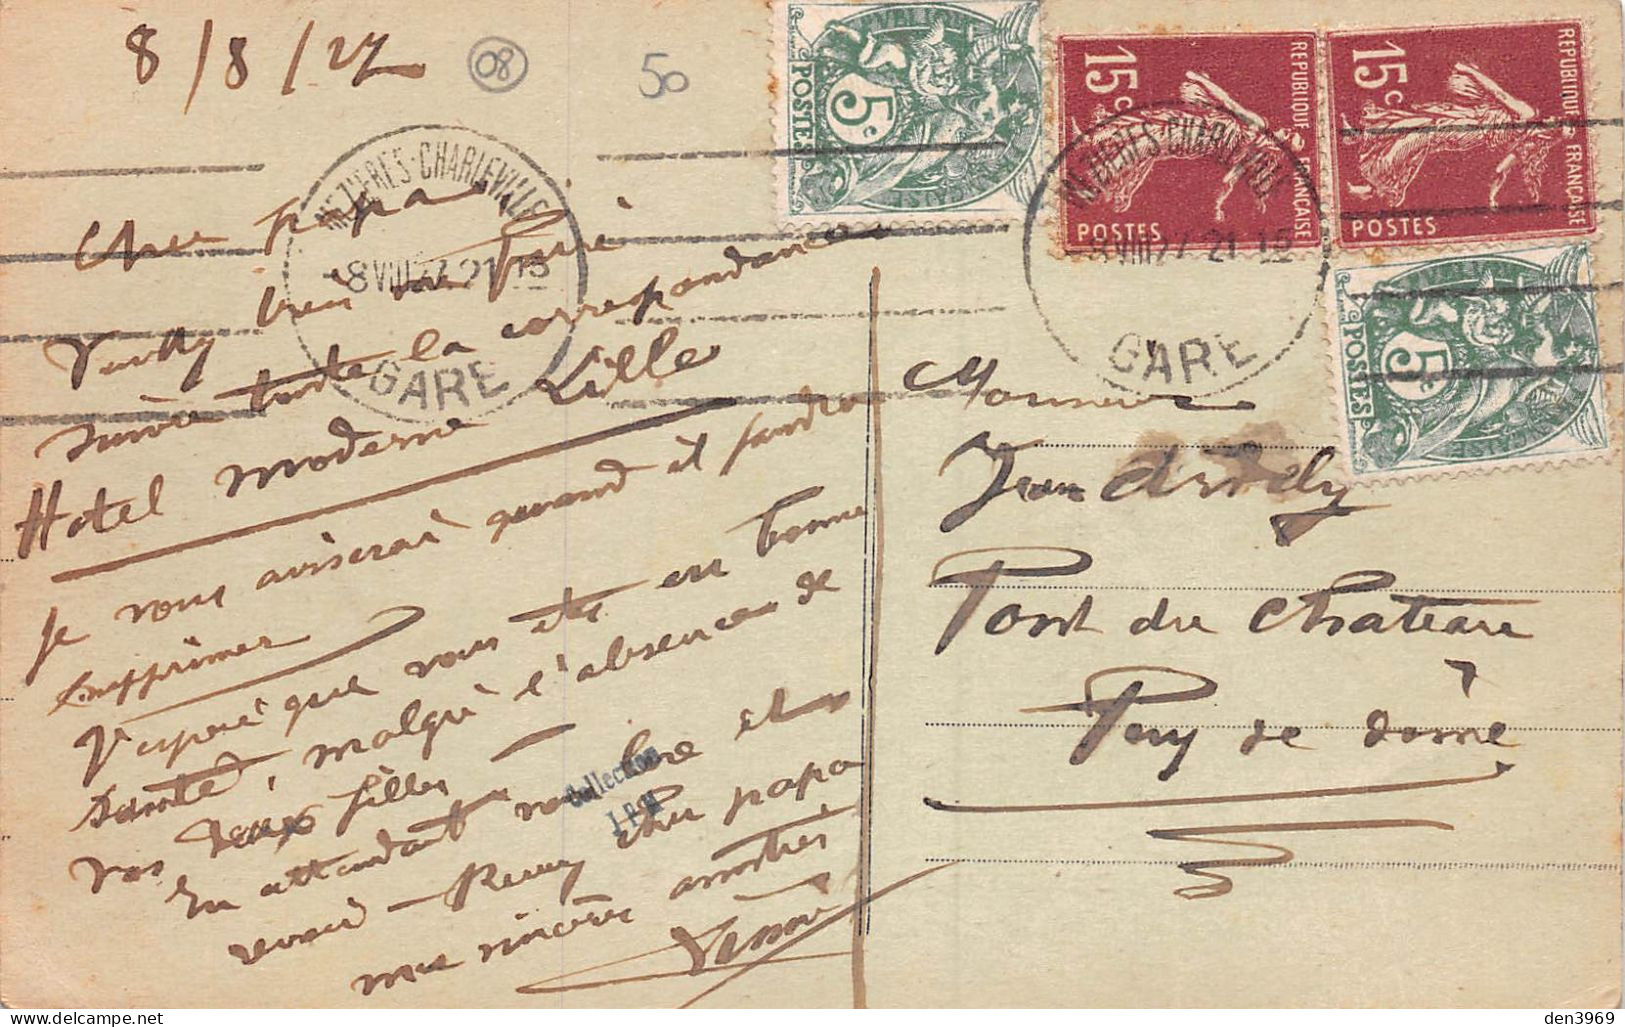 8/8/27
08
50
Cher papa
Veuillez bien me faire
suivre toute la correspondance
Hotel moderne Lille
Je vous aviserai quand il faudra
supprimer
J'espère que vous êtes en bonne
santé, malgré l'absence de
vos deux filles
En attendant votre
revoir - Recevez cher papa
mes sincères amitiés
Monsieur
Jean
Pont du Chateau
Puy de dôme
MEZIERES-CHARLEVILLE
-8 VIII 27 21 15
GARE
MEZIERES-CHARLEVILLE
-8 VIII 27 21 15
GARE
5c
POSTES
REPUBLIQUE FRANÇAISE
15c
POSTES
REPUBLIQUE FRANÇAISE
15c
POSTES
REPUBLIQUE FRANÇAISE
5c
POSTES
REPUBLIQUE FRANÇAISE
Collection
delcampe.net
den3969